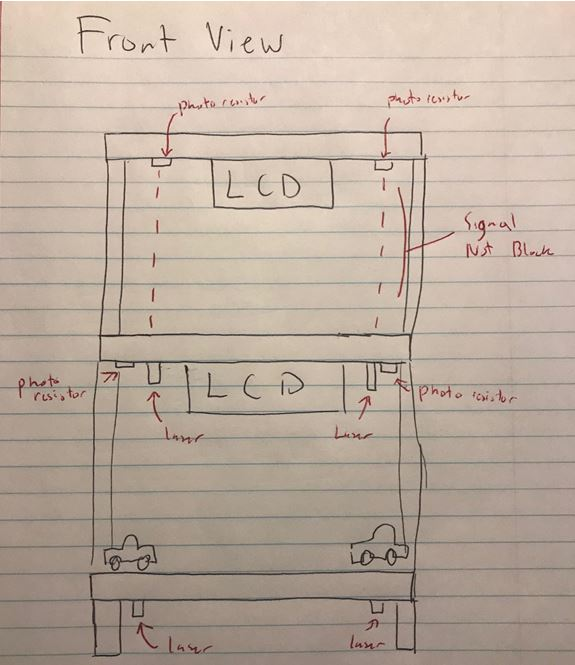 Front View
photo resistor
photo resistor
LCD
Signal
Not Block
LCD
photo
resistor
photo resistor
laser
Laser
laser
laser